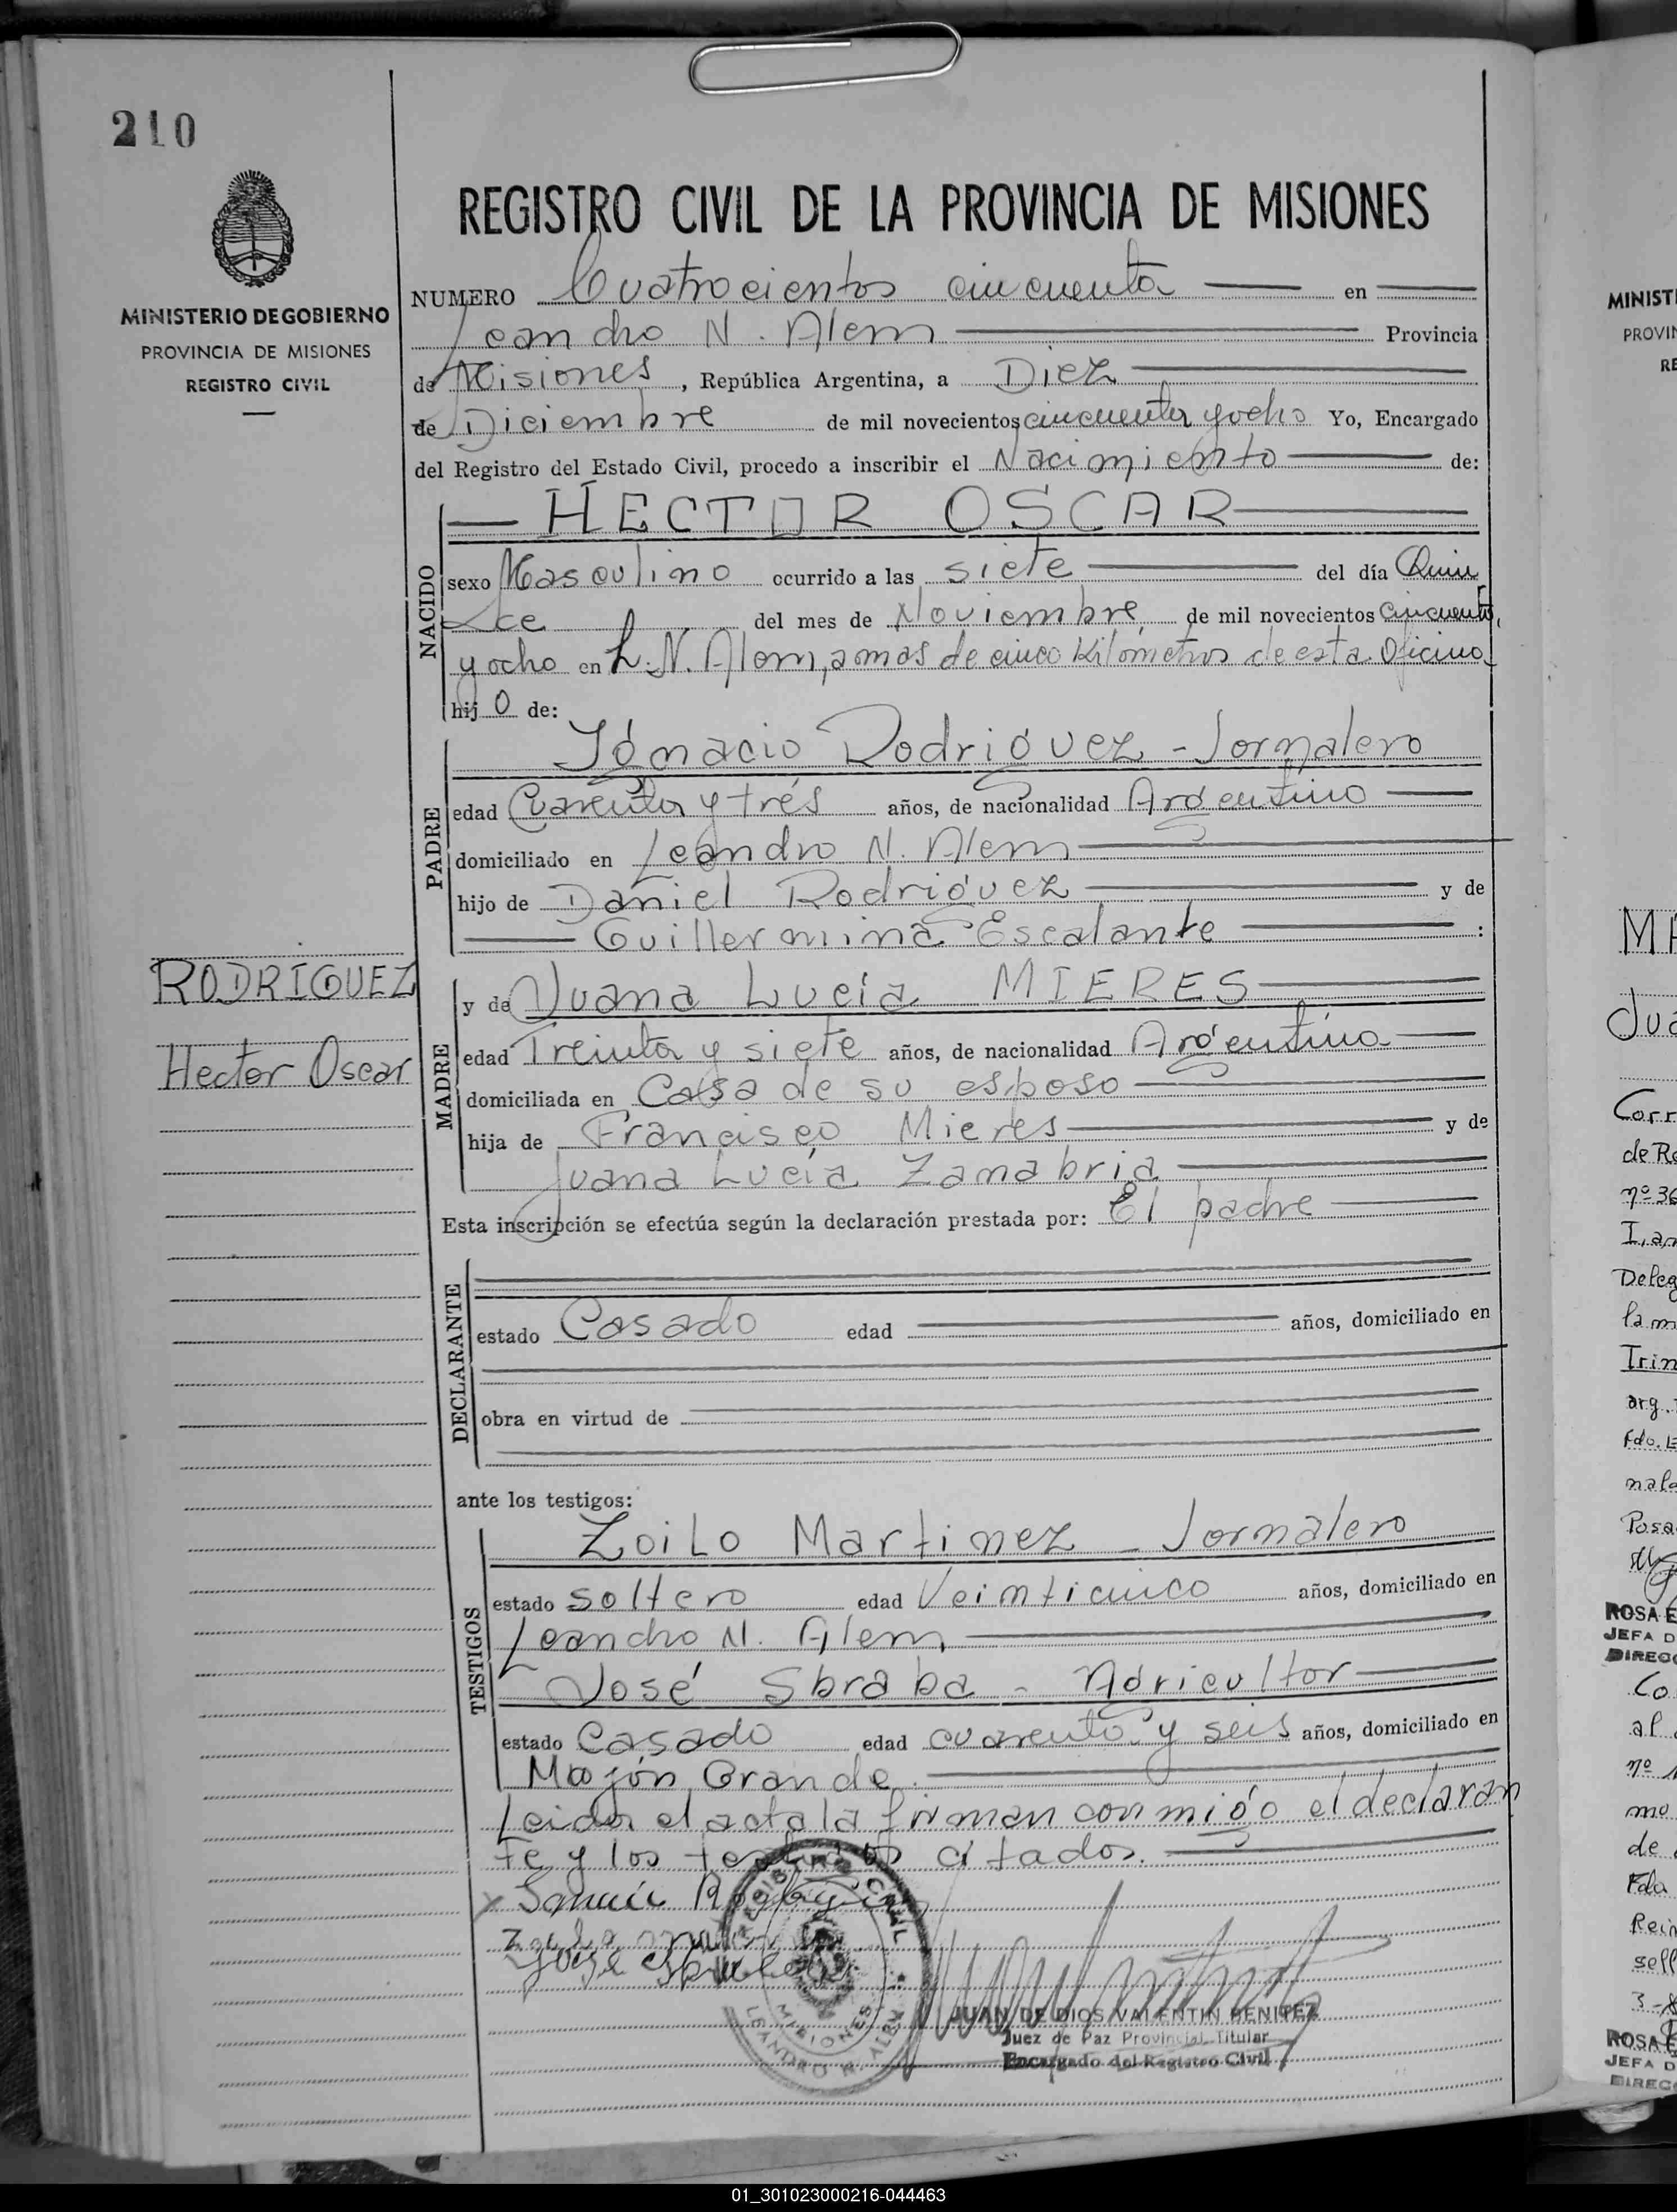 210
MINISTERIO DE GOBIERNO
PROVINCIA DE MISIONES
REGISTRO CIVIL
REGISTRO CIVIL DE LA PROVINCIA DE MISIONES
NUMERO Cuatrocientos cincuenta en
Leandro N. Alem Provincia
de Misiones, República Argentina, a Diez
de Diciembre de mil novecientos cincuenta y ocho Yo, Encargado
del Registro del Estado Civil, procedo a inscribir el Nacimiento de:
NACIDO
HECTOR OSCAR
sexo Masculino ocurrido a las siete del día Quin
ce del mes de Noviembre de mil novecientos cincuenta
y ocho en L. N. Alem, a mas de cinco Kilometros de esta Oficina
hijo de:
PADRE
Ignacio Rodriguez - Jornalero
edad Cuarenta y trés años, de nacionalidad Argentino
domiciliado en Leandro N. Alem
hijo de Daniel Rodriguez y de
Guillermina Escalante :
RODRIGUEZ
Hector Oscar
MADRE
y de Juana Lucía MIERES
edad Treinta y siete años, de nacionalidad Argentina
domiciliada en Casa de su esposo
hija de Francisco Mieres y de
Juana Lucía Zanabria
Esta inscripción se efectúa según la declaración prestada por: El padre
DECLARANTE
estado Casado edad años, domiciliado en
obra en virtud de
ante los testigos:
TESTIGOS
Zoilo Martinez - Jornalero
estado soltero edad Veinticinco años, domiciliado en
Leandro N. Alem
José Sbraba - Agricultor
estado Casado edad cuarenta y seis años, domiciliado en
Mojón Grande.
Leida el acta la firman conmigo el declaran
te y los testigos citados.
REGISTRO CIVIL
MISIONES
LEANDRO N. ALEM
JUAN DE DIOS VALENTIN BENITEZ
Juez de Paz Provincial Titular
Encargado del Registro Civil
MINIST
PROVIN
RE
Corr
de Re
nº 36
Deleg
la m
Trin
arg.
Fdo.
Posa
ROSA E
JEFA D
DIREC
Co
al
nº
mo
de
Fdo
Rein
sell
ROSA E
JEFA D
DIREC
01_301023000216-044463